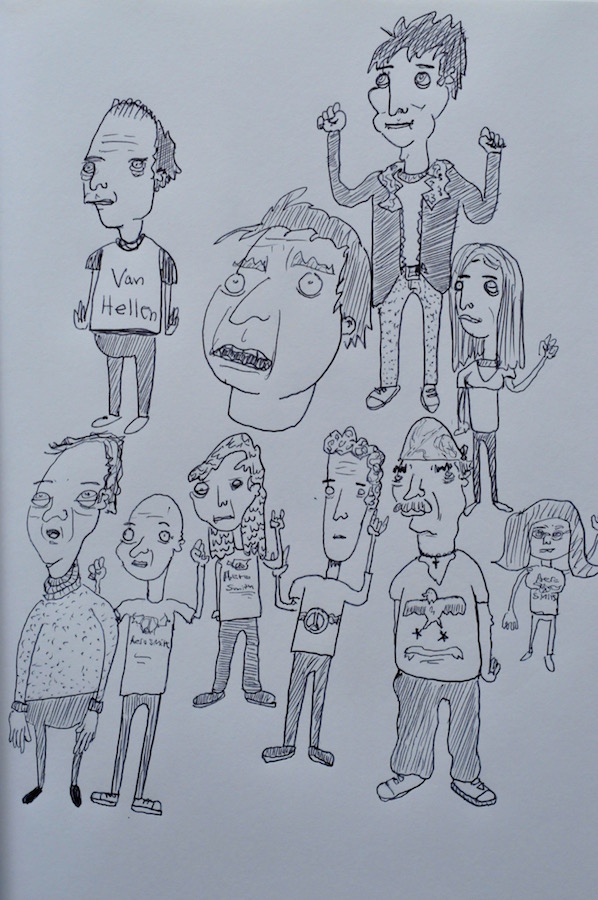 Van
Hellen
Aero
Smith
Aero Smith
Aero
Smith